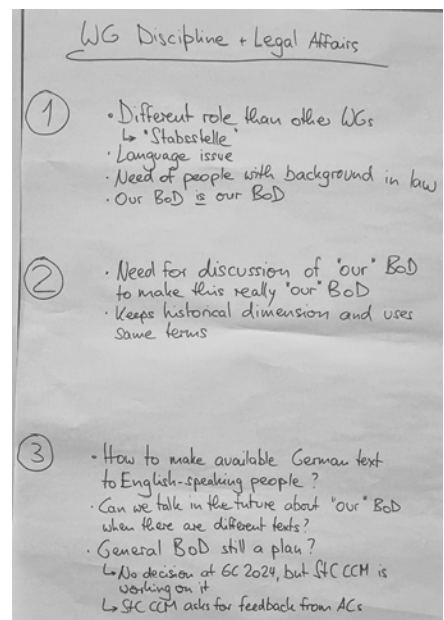 WG Discipline + Legal Affairs
1
• Different role than other WGs
↳ "Stabsstelle"
• Language issue
• Need of people with background in law
• Our BoD is our BoD
2
• Need for discussion of "our" BoD
to make this really "our" BoD
• Keeps historical dimension and uses
same terms
3
• How to make available German text
to English-speaking people?
• Can we talk in the future about "our" BoD
when there are different texts?
• General BoD still a plan?
↳ No decision at GC 2024, but StC CCM is
working on it
↳ StC CCM asks for feedback from ACs